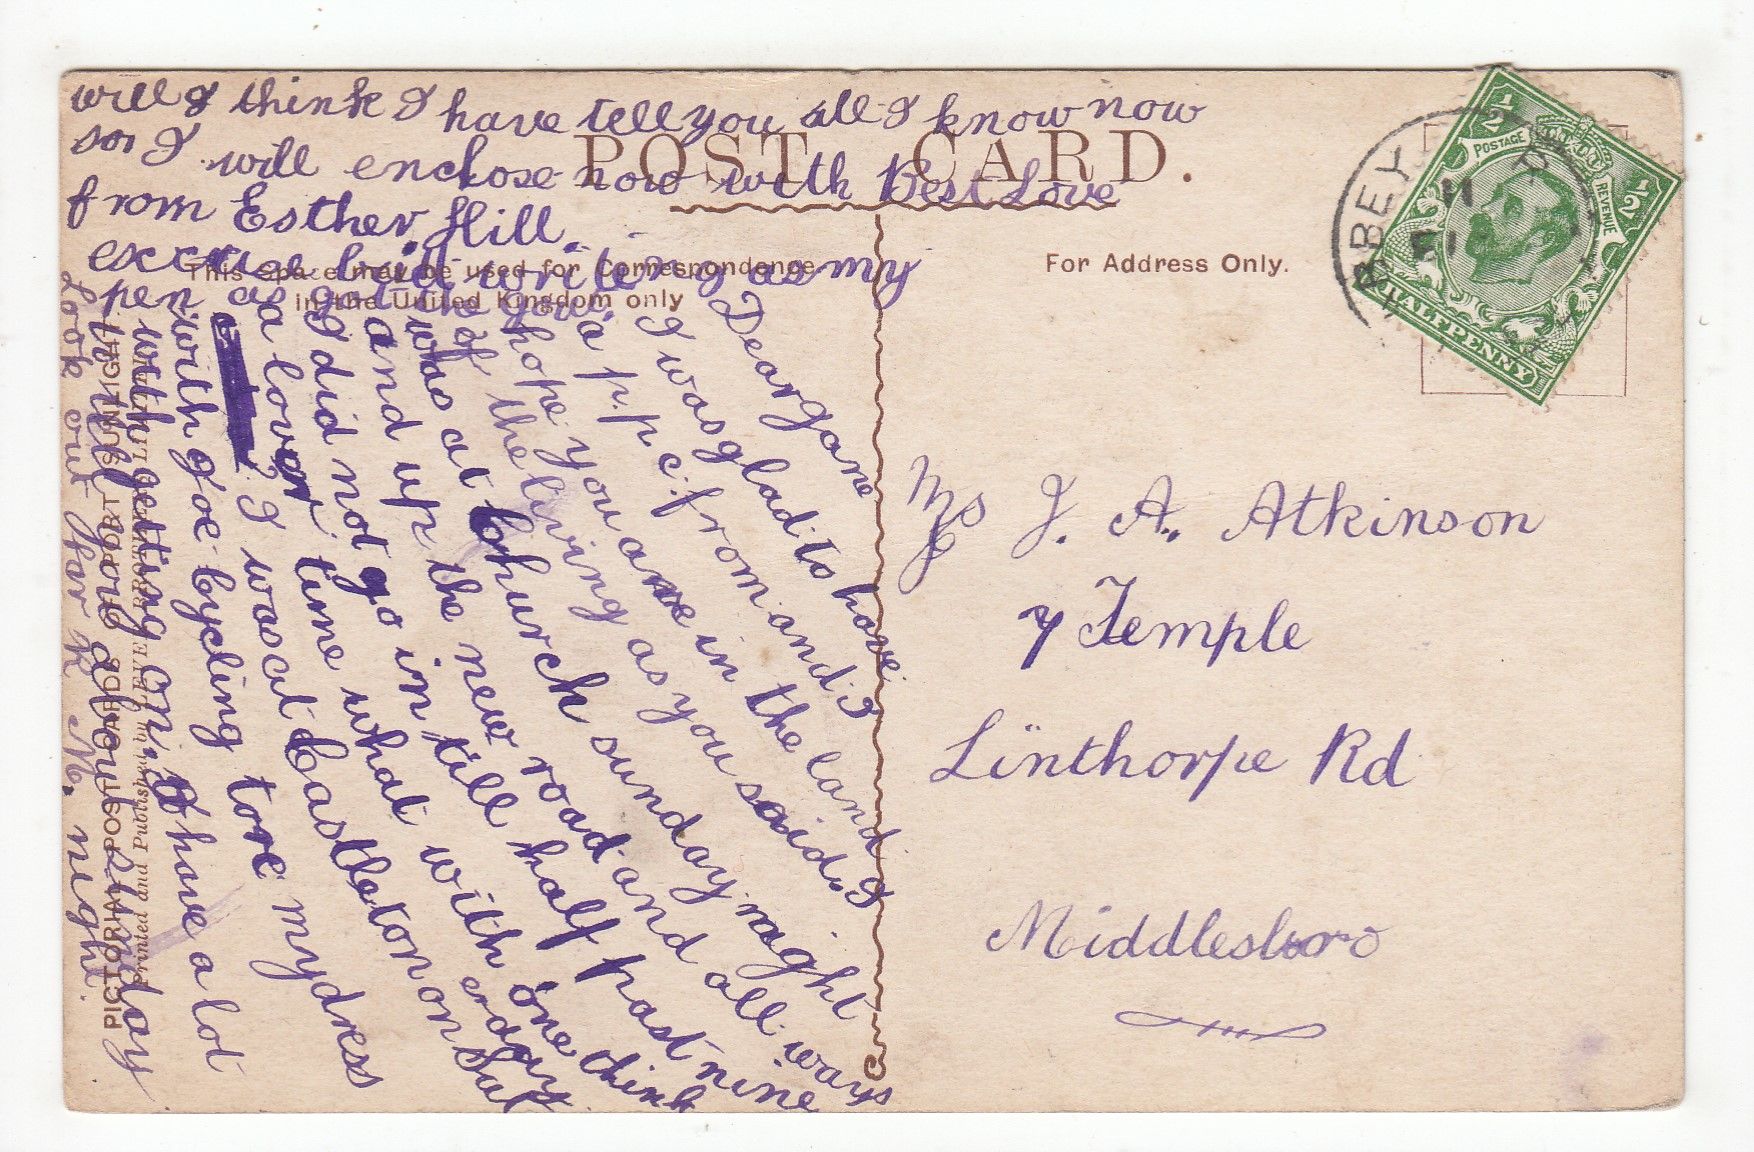 will I think I have tell you all I know now
so I will enclose now with Best Love
from Esther Hill.
excuse bad writeing as my
pen as got the gout.
POST CARD.
This space may be used for Correspondence
in the United Kingdom only
For Address Only.
Dear Jane
I was glad to have
a p.p.c. from and I
hope you are in the land
of the living as you said. I
was at Church sunday night
and up the new road and all ways
I did not go in till half past nine
a lover time what with one think
I was at Castleton on Sat
erday
with Joe bycling tore my dress
with getting on. I have a lot
to tell you about
Look out for R. M. night.
PICTORIAL POST CARDS OF PORT SUNLIGHT.
Printed and Published by LEVER BROTHERS LIMITED
Ms J. A. Atkinson
7 Temple
Linthorpe Rd
Middlesboro
POSTAGE
REVENUE
1/2
1/2
HALFPENNY
ABBEY
11